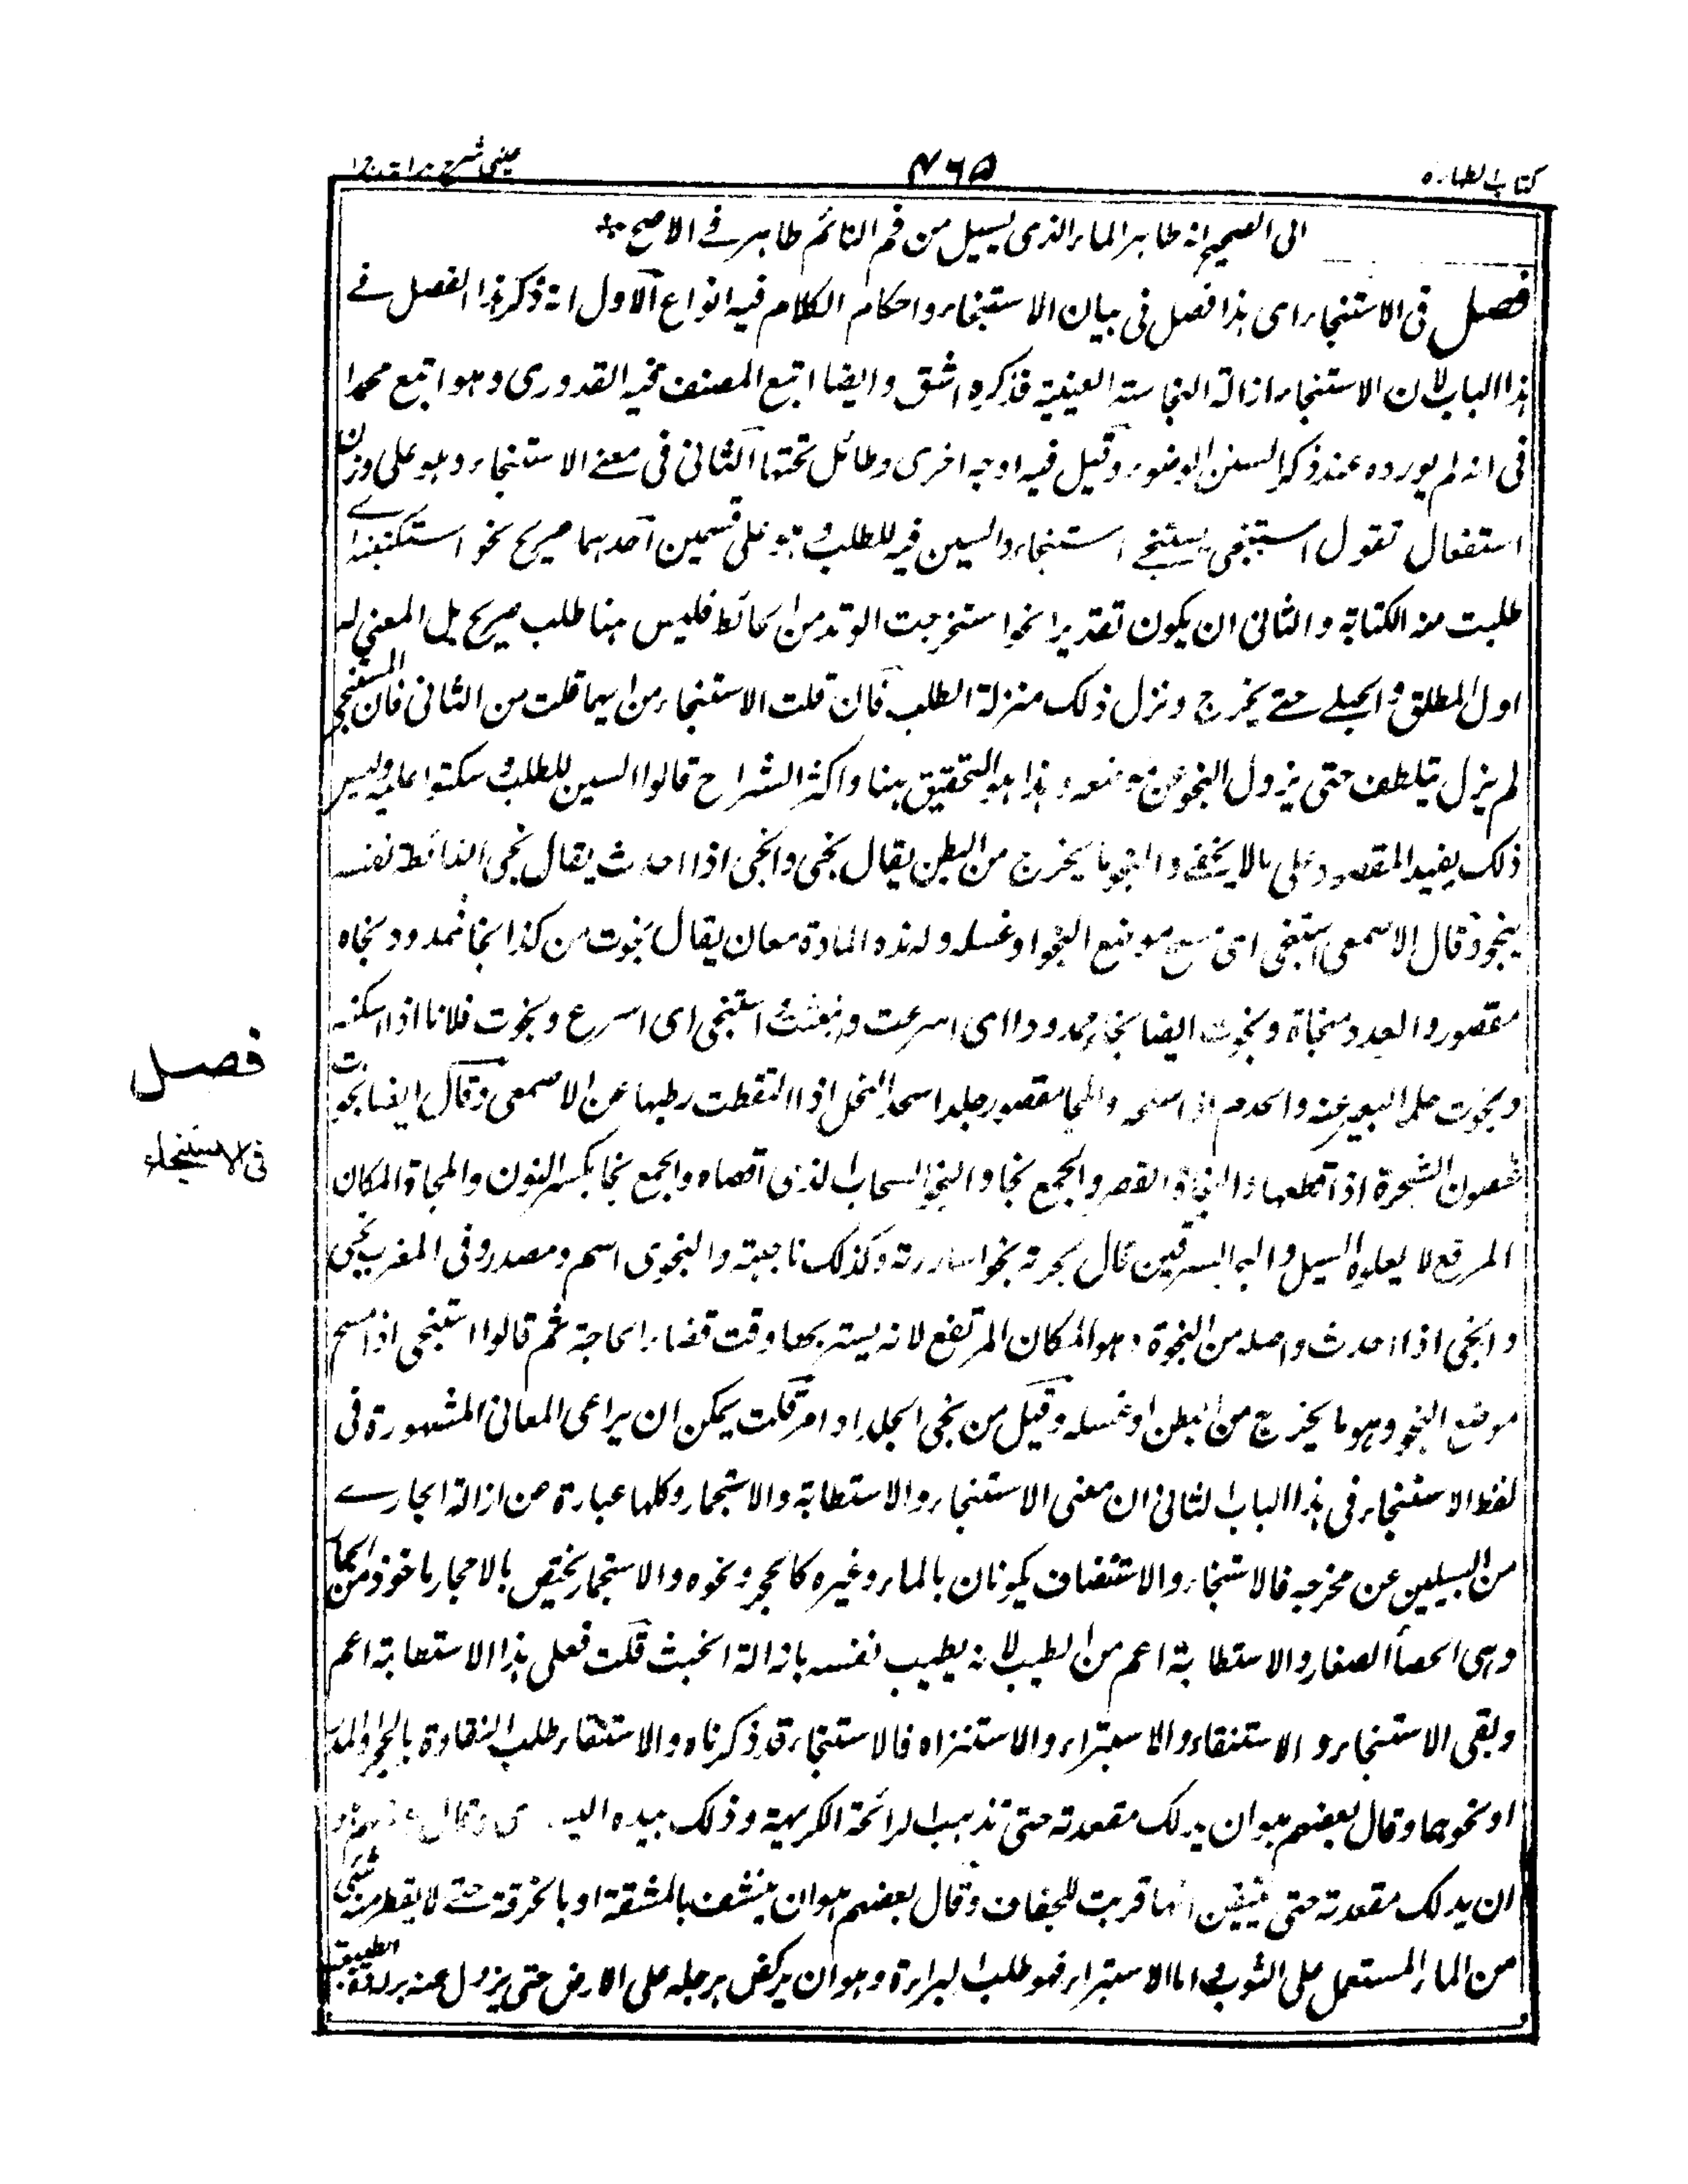 كتاب الطهارة
٤٦٥
عينى شرح هداية ج١
الى الصحيح انه طاهر الماء الذى يسيل من فم النائم طاهر فى الاصح
فصل فى الاستنجاء اى هذا فصل فى بيان الاستنجاء واحكام الكلام فيه انواع الاول انه ذكر هذا الفصل فے
هذا الباب لان الاستنجاء ازالة النجاسة العينية فذكره اشق وايضا اتبع المصنف فيه القدورى وهو اتبع محمدا
فى انه لم يورده عند ذكر السنن الوضوء وقيل فيه اوجه اخرى وطائل تحتها الثانى فى معنے الاستنجاء وهو على وزن
استفعال تقول استنجى يستنجے استنجاء والسين فيه للطلب وهو على قسمين احدهما صريح نحو استكتبته اے
طلبت منه الكتابة والثانى ان يكون تقديرا نحو استخرجت الوتد من الحائط فليس هنا طلب صريح بل المعنى لم
اول المطلق و الحيلے حتے يخرج ونزل ذلك منزلة الطلب فان قلت الاستنجاء من ايهما قلت من الثانى فان المستنجى
لم يزل يتلطف حتى يزول النجو عن موضعه وهذا هو التحقيق هنا واكثر الشراح قالوا السين للطلب وسكتوا عليه وليس
ذلك يفيد المقصود على ما لا يخفے والنجو ما يخرج من البطن يقال نجى وانجى اذا احدث يقال نجى الغائط نفسه
ينجو وقال الاصمعى استنجى اى مسح موضع النجو او غسله ولهذه المادة معان يقال نجوت من كذا نجاء ممدود ونجاه
مقصور والعدد منجاة ونجوت ايضا نجاء ممدودا اى اسرعت استنجى اى اسرع ونجوت فلانا اذا استكنهه
ونجوت جلد البعير عنه اذا سلخه والنجا مقصور جلد اذا التقطت رطبها عن الاصمعى وقال ايضا نجوت
غصون الشجرة اذا قطعها والجمع نجا والنجو السحاب الذى والجمع نجا بكسر النون والمنجاة المكان
المرتفع لا يعلوه السيل قال نجوته نجوا ساررته وكذلك ناجيته والنجوى اسم ومصدر وفى المغرب نجى
وانجى اذا احدث واصله من النجوة وهو المكان المرتفع لانه يستتر بها وقت قضاء الحاجة ثم قالوا استنجى اذا مسح
موضع النجو وهو ما يخرج من البطن او غسله وقيل من نجى الجلد قلت يمكن ان يراعى المعانى المشهورة فى
لفظ الاستنجاء فى هذا الباب الثانى ان معنى الاستنجاء والاستطابة والاستجمار وكلها عبارة عن ازالة الجارے
من السبيلين عن مخرجه فالاستنجاء والاستنضاف يكونان بالماء وغيره كالحجر ونحوه والاستجمار يختص بالاحجار ماخوذ من الجمار
وهى الحصا الصغار والاستطابة اعم من الطيب لانه يطيب نفسه بازالة الخبث قلت فعلى هذا الاستطابة اعم
وبقى الاستنجاء و الاستنقاء والاستبراء والاستنزاه فالاستنجاء قد ذكرناه والاستنقاء طلب النقاوة بالحجر والمدر
او نحوهما وقال بعضهم هو ان يدلك مقعدته حتى تذهب الرائحة الكريهة وذلك بيده اليسرى وقال بعضهم هو
ان يدلك مقعدته حتى يتيقن انها قربت للجفاف وقال بعضهم هو ان ينشف بالمنشفة او بالخرقة حتے لا يقطر منه شئ
من الماء المستعمل على الثوب اما الاستبراء فهو طلب البراءة وهو ان يركض برجله على الارض حتى يزول عنه برلغة الطبيعة
فصل
فى الاستنجاء